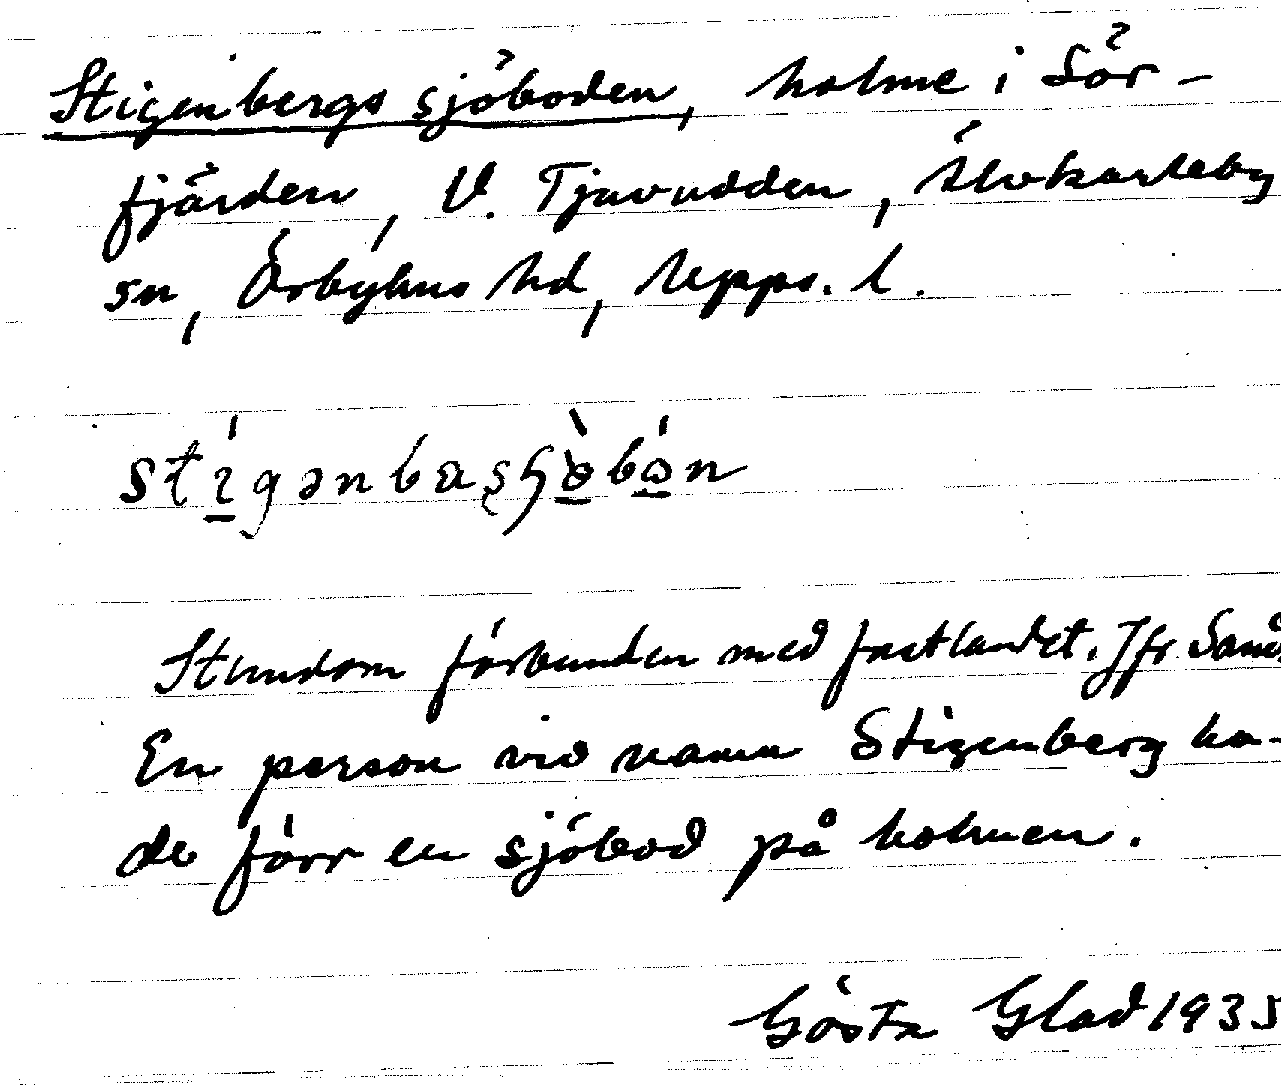 Stigenbergs sjöboden, holme i Sör-
fjärden, V. Tjuvudden, Älvkarleby
sn, Örbyhus hd, Upps. l.
Stundom förbunden med fastlandet. Jfr
En person vid namn Stigenberg ha-
de förr en sjöbod på holmen.
Gösta Glad 1935